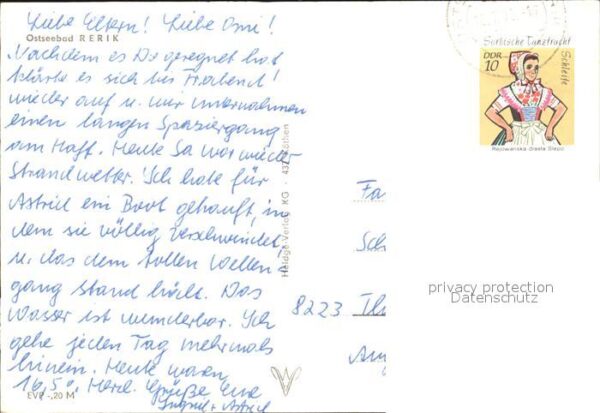 Liebe Eltern! Liebe Omi!
Ostseebad RERIK
Nachdem es Do geregnet hat
klärte es sich bis Fr abend
wieder auf u. wir unternahmen
einen langen Spaziergang
am Haff. Heute Sa war wieder
Strandwetter. Ich habe für
Astrid ein Boot gekauft, in
dem sie völlig verschwindet
u. das dem tollen Wellen-
gang stand hält. Das
Wasser ist wunderbar. Ich
gehe jeden Tag mehrmals
hinein. Heute waren
16,5°. Herzl. Grüße Eure
Ingrid + Astrid
EVP -,20 M
Heldge-Verlag KG · 437 Köthen
Sorbische Tanztracht
DDR
10
Schleife
Rejowanska drasta Slepo
Fa
Sch
8223
privacy protection
Datenschutz